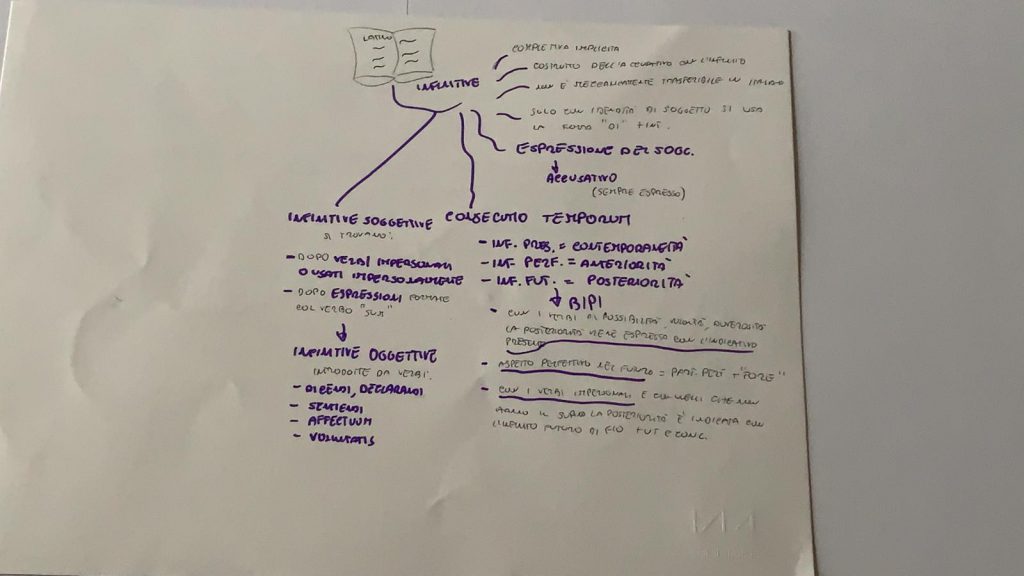 LATINO
INFINITIVE
COMPLETIVA IMPLICITA
COSTRUTTO DELL'ACCUSATIVO CON L'INFINITO
NON È MECCANICAMENTE TRASFERIBILE IN ITALIANO
SOLO CON IDENTITÀ DI SOGGETTO SI USA
LA FORMA "DI" + INF.
ESPRESSIONE DEL SOGG.
ACCUSATIVO
(SEMPRE ESPRESSO)
INFINITIVE SOGGETTIVE
SI TROVANO:
- DOPO VERBI IMPERSONALI
O USATI IMPERSONALMENTE
- DOPO ESPRESSIONI FORMATE
COL VERBO "SUM"
INFINITIVE OGGETTIVE
INTRODOTTE DA VERBI:
- DICENDI, DECLARANDI
- SENTIENDI
- AFFECTUUM
- VOLUNTATIS
CONSECUTIO TEMPORUM
- INF. PRES. = CONTEMPORANEITÀ
- INF. PERF. = ANTERIORITÀ
- INF. FUT. = POSTERIORITÀ
BIPI
• CON I VERBI DI POSSIBILITÀ, VOLONTÀ, DOVEROSITÀ
LA POSTERIORITÀ VIENE ESPRESSO CON L'INDICATIVO
PRESENTE
- ASPETTO PERFETTIVO NEL FUTURO = PART. PERF + "FORE"
- CON I VERBI IMPERSONALI E CON QUELLI CHE NON
HANNO IL SUPINO LA POSTERIORITÀ È INDICATA CON
L'INFINITO FUTURO DI FIO FUT E CONG.